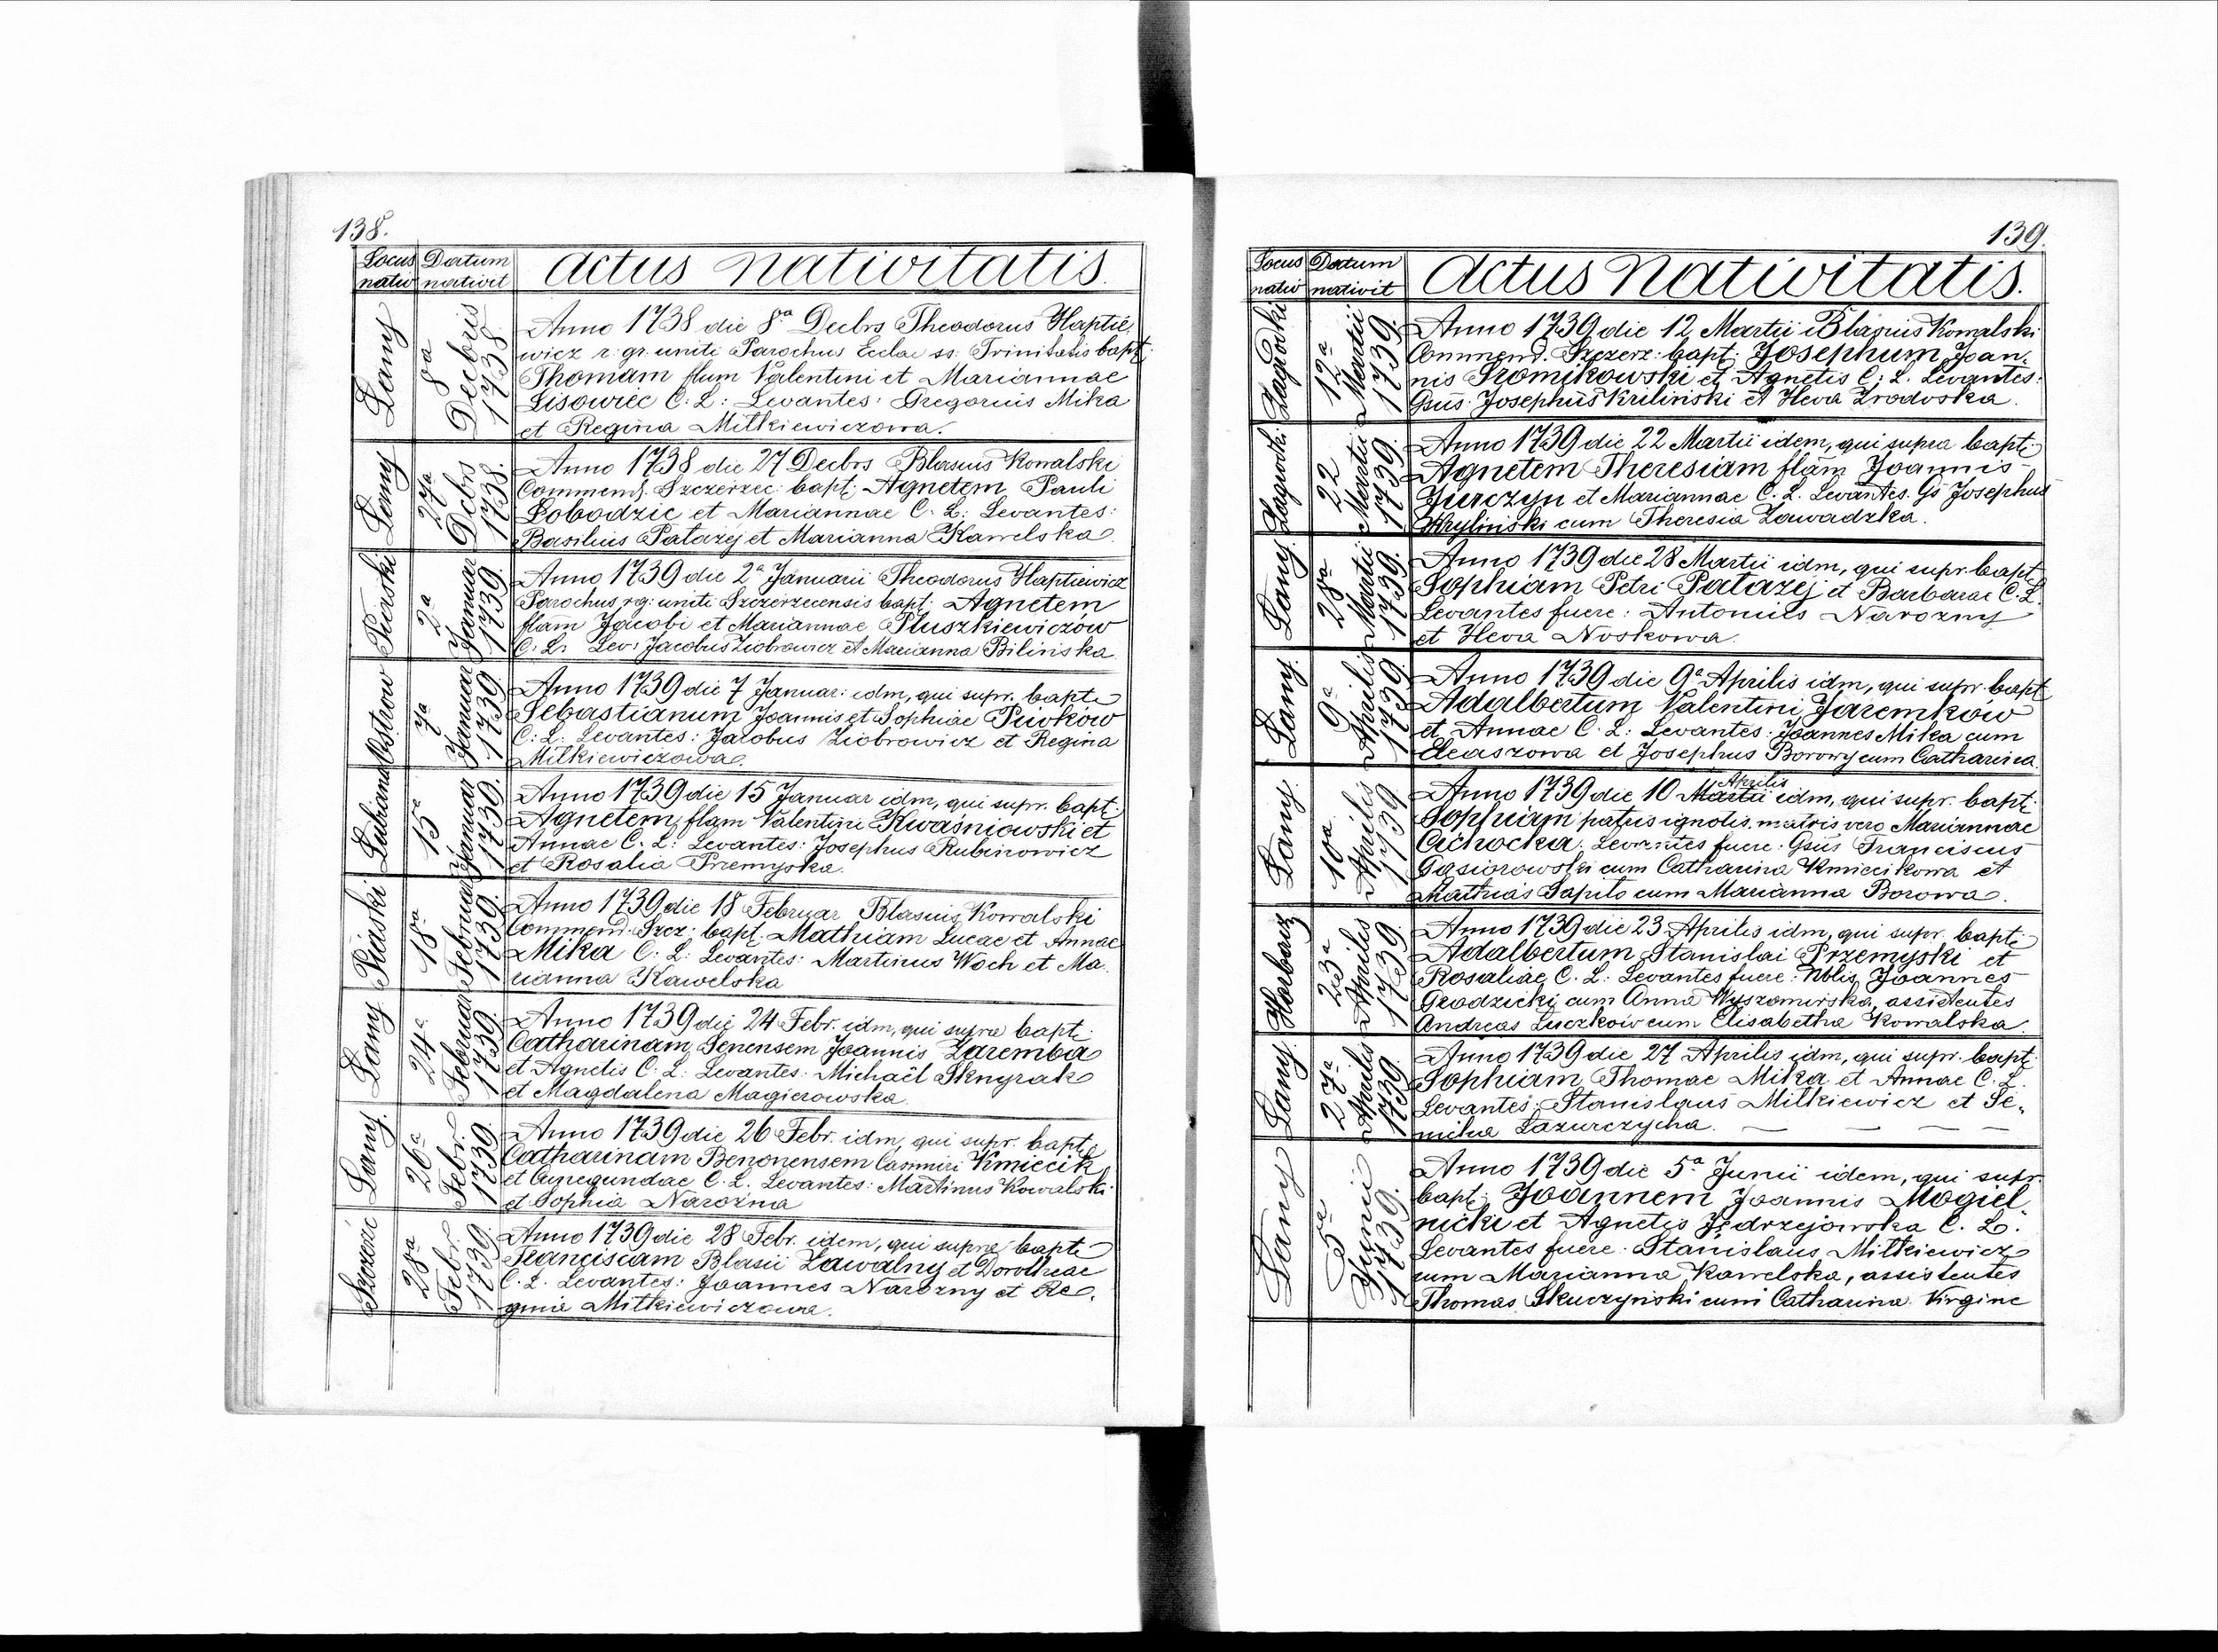 138.
Locus nativ
Datum nativit
Actus Nativitatis.
Łany
8a Decbris 1738
Anno 1738 die 8a Decbrs Theodorus Haptie,
wicz r. gr. uniti Parochus Ecclae ss. Trinitatis bapt:
Thomam flum Valentini et Mariannae
Lisowiec C: L: Levantes: Gregorius Mika
et Regina Mitkiewiczowa.
Łany
27a Dcbrs 1738.
Anno 1738 die 27 Decbrs Blasius Kowalski
Commend. Szczerzec: bapt: Agnetem Pauli
Łobodzic et Mariannae C. L: Levantes:
Basilius Patazej et Marianna Kawelska
Piaski
2a Januar 1739.
Anno 1739 die 2a Januarii Theodorus Haptiewicz
Parochus r.g. uniti Szczerzecensis bapt: Agnetem
flam Jacobi et Mariannae Pluszkiewiczów
C. L: Lev: Jacobus Ziobrowicz et Marianna Bilinska
Ostrow
7a Januar 1739
Anno 1739 die 7 Januar: idm, qui supr. bapt:
Sebastianum Joannis et Sophiae Piwkow
C: L: Levantes: Jacobus Ziobrowicz et Regina
Mitkiewiczowa.
Lubiana
15a Januar 1739.
Anno 1739 die 15 Januar idm, qui supr. bapt:
Agnetem flam Valentini Kwaśniowski et
Annae C. L: Levantes: Josephus Rubinowicz
et Rosalia Przemyska.
Piaski
18a Februar 1739.
Anno 1739 die 18 Februar Blasius Kowalski
Commend. Szcz: bapt. Mathiam Lucae et Annae
Mika C: L: Levantes: Martinus Woch et Ma.
rianna Kawelska
Łany
24a Februar 1739.
Anno 1739 die 24 Febr. idm, qui supra bapt:
Catharinam Senensem Joannis Zaremba
et Agnetis C: L: Levantes: Michaël Sknyrak
et Magdalena Magierowska
Łany.
26a Febr. 1739.
Anno 1739 die 26 Febr. idm, qui supr. bapt:
Catharinam Benonensem Casimiri Kmiecik
et Cunegundae C. L. Levantes: Martinus Kowalski
et Sophia Narożna
Szczerzec
28a Febr. 1739.
Anno 1739 die 28 Febr. idem, qui supra bapt:
Franciscam Blasii Zawalny et Dorotheae
C. L. Levantes: Joannes Narozny et Re,
gina Mitkiewiczowa.
139.
Locus nativ
Datum nativit
Actus Nativitatis.
Zagrodki
12a Martii 1739.
Anno 1739 die 12 Martii Blasius Kowalski
Commend. Szczerz: bapt: Josephum Joan,
nis Sromikowski et Agnetis C: L. Levantes:
Gsus Josephus Kriliński et Heva Zrodoska.
Zagrodki
22 Martii 1739.
Anno 1739 die 22 Martii idem, qui supra bapt:
Agnetem Theresiam flam Joannis
Jurczyn et Mariannae C. L. Levantes. Gs Josephus
Kryliński cum Theresia Zawadzka.
Łany.
28a Martii 1739.
Anno 1739 die 28 Martii idm, qui supr. bapt:
Sophiam Petri Patazej et Barbarae C. L.
Levantes fuere: Antonius Narozny
et Heva Noskowa.
Łany.
9a Aprilis 1739.
Anno 1739 die 9a Aprilis idm, qui supr. bapt:
Adalbertum Valentini Jaremków
et Annae C. L: Levantes: Joannes Mika cum
Eleaszowa et Josephus Borowy cum Catharina.
Łany.
10a Aprilis 1739
Aprilis
Anno 1739 die 10 Martii idm, qui supr. bapt:
Sophiam patris ignotis, matris vero Mariannae
Cichocka. Levantes fuere: Gsus Franciscus
Gasiorowski cum Catharina Kmiecikowa et
Mathias Sapilo cum Marianna Borowa.
Horbacz
23a Aprilis 1739
Anno 1739 die 23 Aprilis idm, qui supr. bapt:
Adalbertum Stanislai Przemyski et
Rosaliae C. L: Levantes fuere: Nblis Joannes
Grodzicki cum Anna Wyszomirska, assistentes
Andreas Luczkow cum Elisabetha Kowalska.
Łany
27a Aprilis 1739.
Anno 1739 die 27 Aprilis idm, qui supr. bapt:
Sophiam Thomae Mika et Annae C. L.
Levantes: Stanislaus Mitkiewicz et Se,
milia Lazurczycha.
Łany
5a Junii 1739.
Anno 1739 die 5a Junii idem, qui supr.
bapt: Joannem Joannis Mogiel,
nicki et Agnetis Jędrzejowska C. L.
Levantes fuere: Stanislaus Mitkiewicz
cum Marianna Kawelska, assistentes
Thomas Skuczynski cum Catharina Virgine